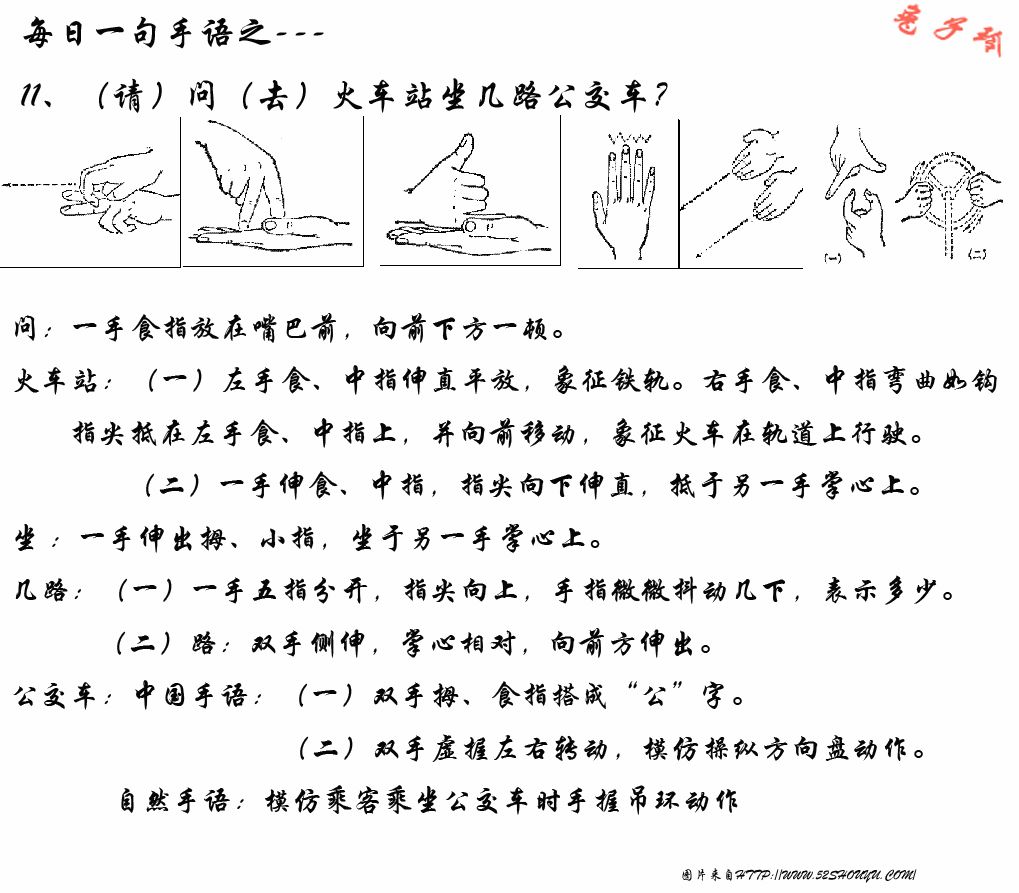 每日一句手语之---
11、（请）问（去）火车站坐几路公交车？
(一)
(二)
问：一手食指放在嘴巴前，向前下方一顿。
火车站：（一）左手食、中指伸直平放，象征铁轨。右手食、中指弯曲如钩
指尖抵在左手食、中指上，并向前移动，象征火车在轨道上行驶。
（二）一手伸食、中指，指尖向下伸直，抵于另一手掌心上。
坐：一手伸出拇、小指，坐于另一手掌心上。
几路：（一）一手五指分开，指尖向上，手指微微抖动几下，表示多少。
（二）路：双手侧伸，掌心相对，向前方伸出。
公交车：中国手语：（一）双手拇、食指搭成“公”字。
（二）双手虚握左右转动，模仿操纵方向盘动作。
自然手语：模仿乘客乘坐公交车时手握吊环动作
图片来自HTTP://WWW.52SHOUYU.COM/